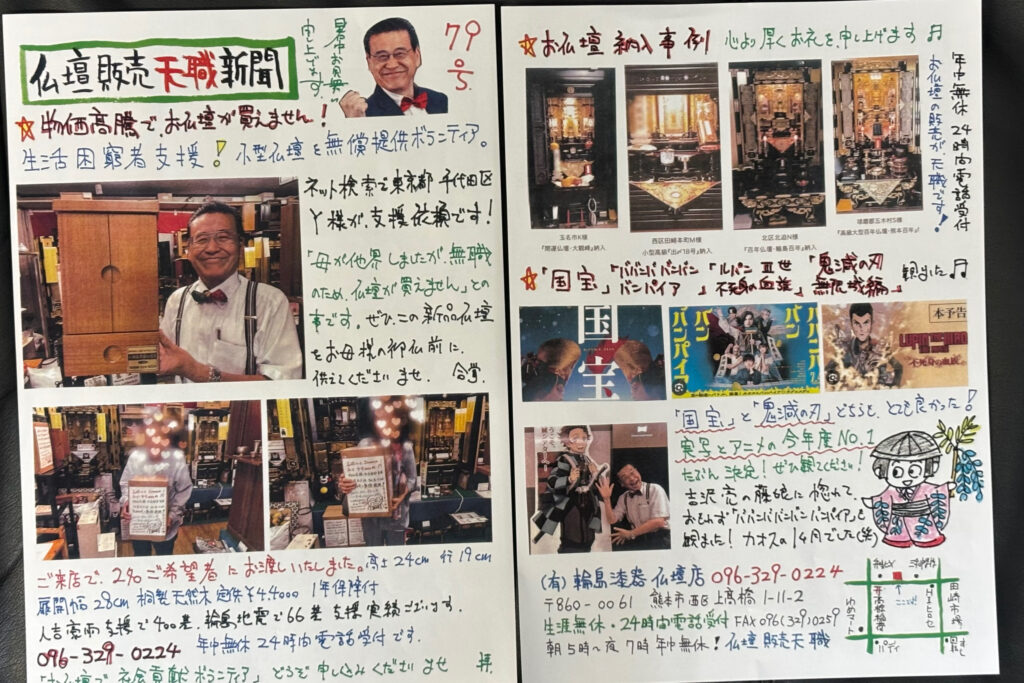 仏壇販売天職新聞
暑中お見舞い
申し上げます。
79
号
☆物価高騰で、お仏壇が買えません！
生活困窮者支援！小型仏壇を無償提供ボランティア。
ネット検索で東京都千代田区
Y様が、支援依頼です！
「母が他界しましたが、無職
のため、仏壇が買えません」との
事です。ぜひ、この新品仏壇
をお母様の御仏前に、
供えてくださいませ、合掌、
ご来店で、2名ご希望者にお渡しいたしました。高さ24cm 行19cm
扉開巾28cm 桐製天然木 定価¥44000 1年保障付
人吉豪雨支援で400基、輪島地震で66基支援実績ございます。
096-329-0224 年中無休24時間電話受付です。
「お仏壇で社会貢献ボランティア」どうぞ申し込みくださいませ 拝、
☆お仏壇納入事例 心より厚くお礼を申し上げます♬
年中無休24時間電話受付
お仏壇の販売が天職です！
玉名市K様
『開運仏壇・大観峰』納入
西区田崎本町M様
小型高級『出〆18号』納入
北区北迫N様
『百年仏壇・輪島百年』納入
球磨郡五木村S様
『高級大型百年仏壇・熊本百年』
☆「国宝」「ババンババンバンバンパイア」「ルパン三世 不死身の血族」「鬼滅の刃 無限城編」観ました♬
国宝
バンパイア
本予告
LUPIN THE IIIRD
不死身の血族
「国宝」と「鬼滅の刃」どちらも、とても良かった！
実写とアニメの今年度No.1
たぶん決定！ぜひ観てください！
吉沢亮の藤娘に惚れて、
おもわず「ババンババンバンバンパイア」も
観ました！カオスの1ヶ月でした(笑)
(有)輪島漆器仏壇店 096-329-0224
〒860-0061 熊本市西区上高橋1-11-2
生涯無休・24時間電話受付 FAX096(329)0259
朝5時〜夜7時 年中無休！仏壇販売天職
ここです
田崎市場
ゆめマート